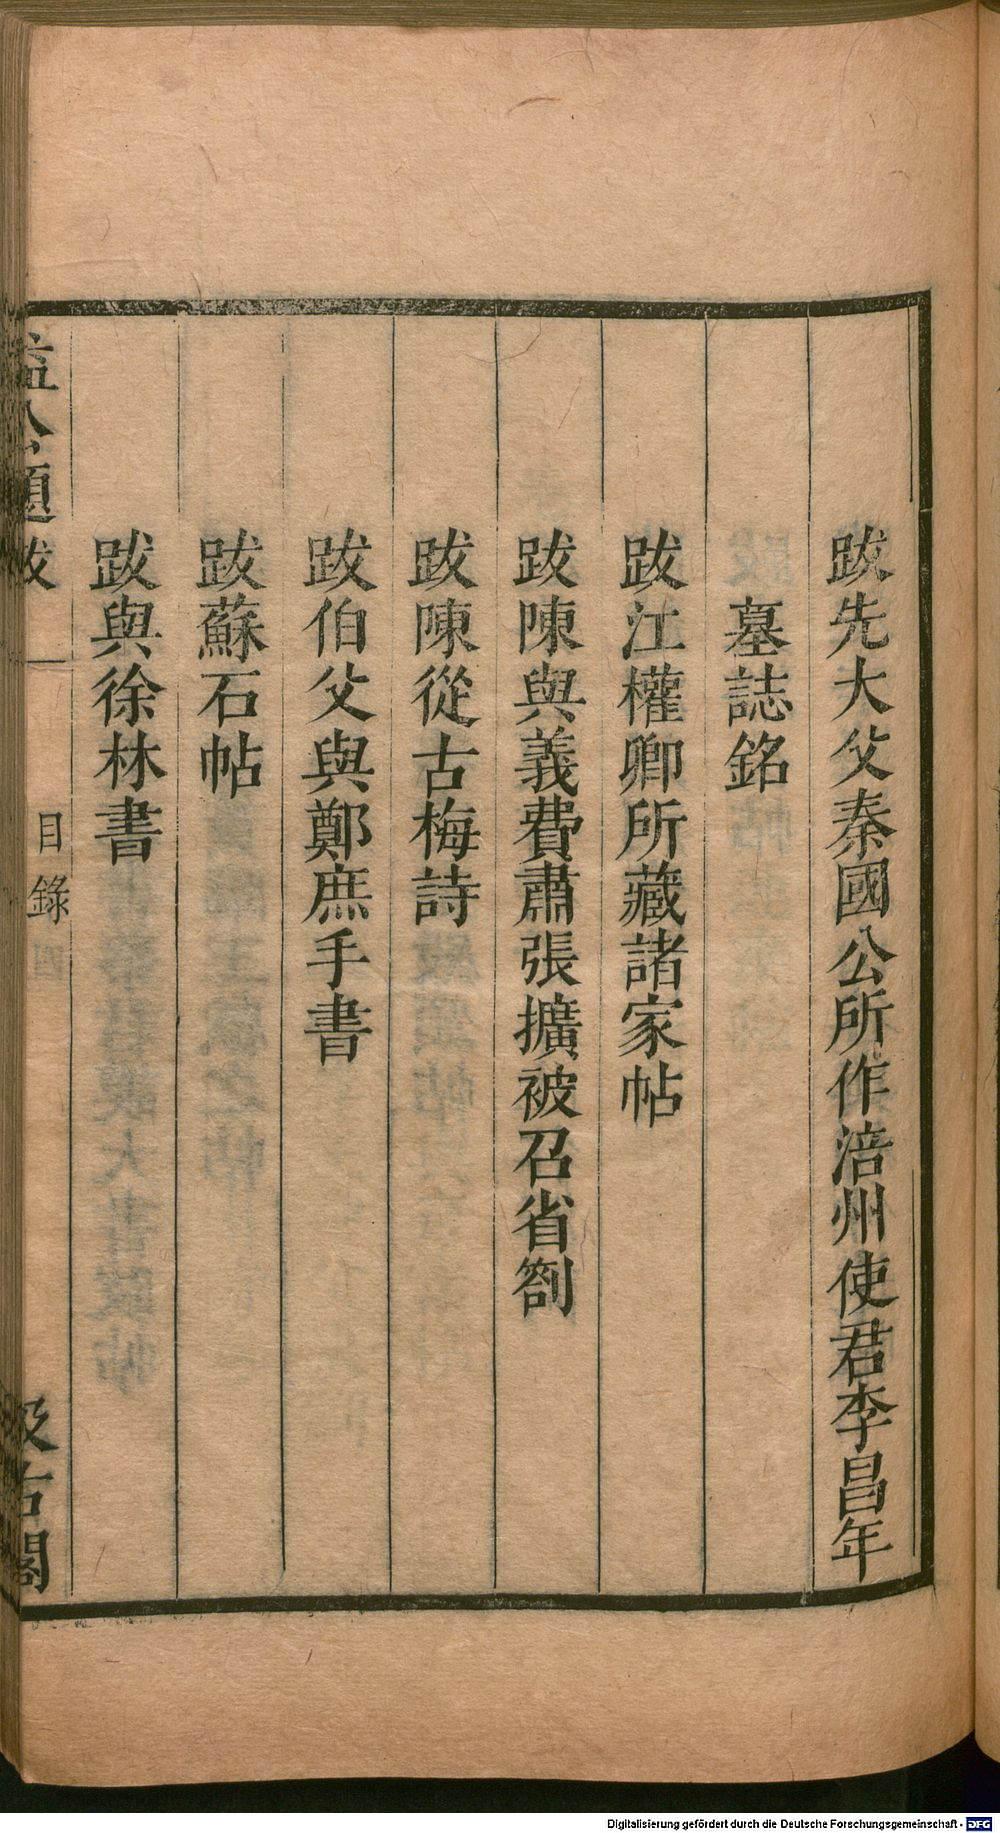 跋先大父秦國公所作涪州使君李昌年
墓誌銘
跋江權卿所藏諸家帖
跋陳與義費肅張擴被召省劄
跋陳從古梅詩
跋伯父與鄭庶手書
跋蘇石帖
跋與徐林書
益公題跋
目錄
四
汲古閣
Digitalisierung gefördert durch die Deutsche Forschungsgemeinschaft - DFG